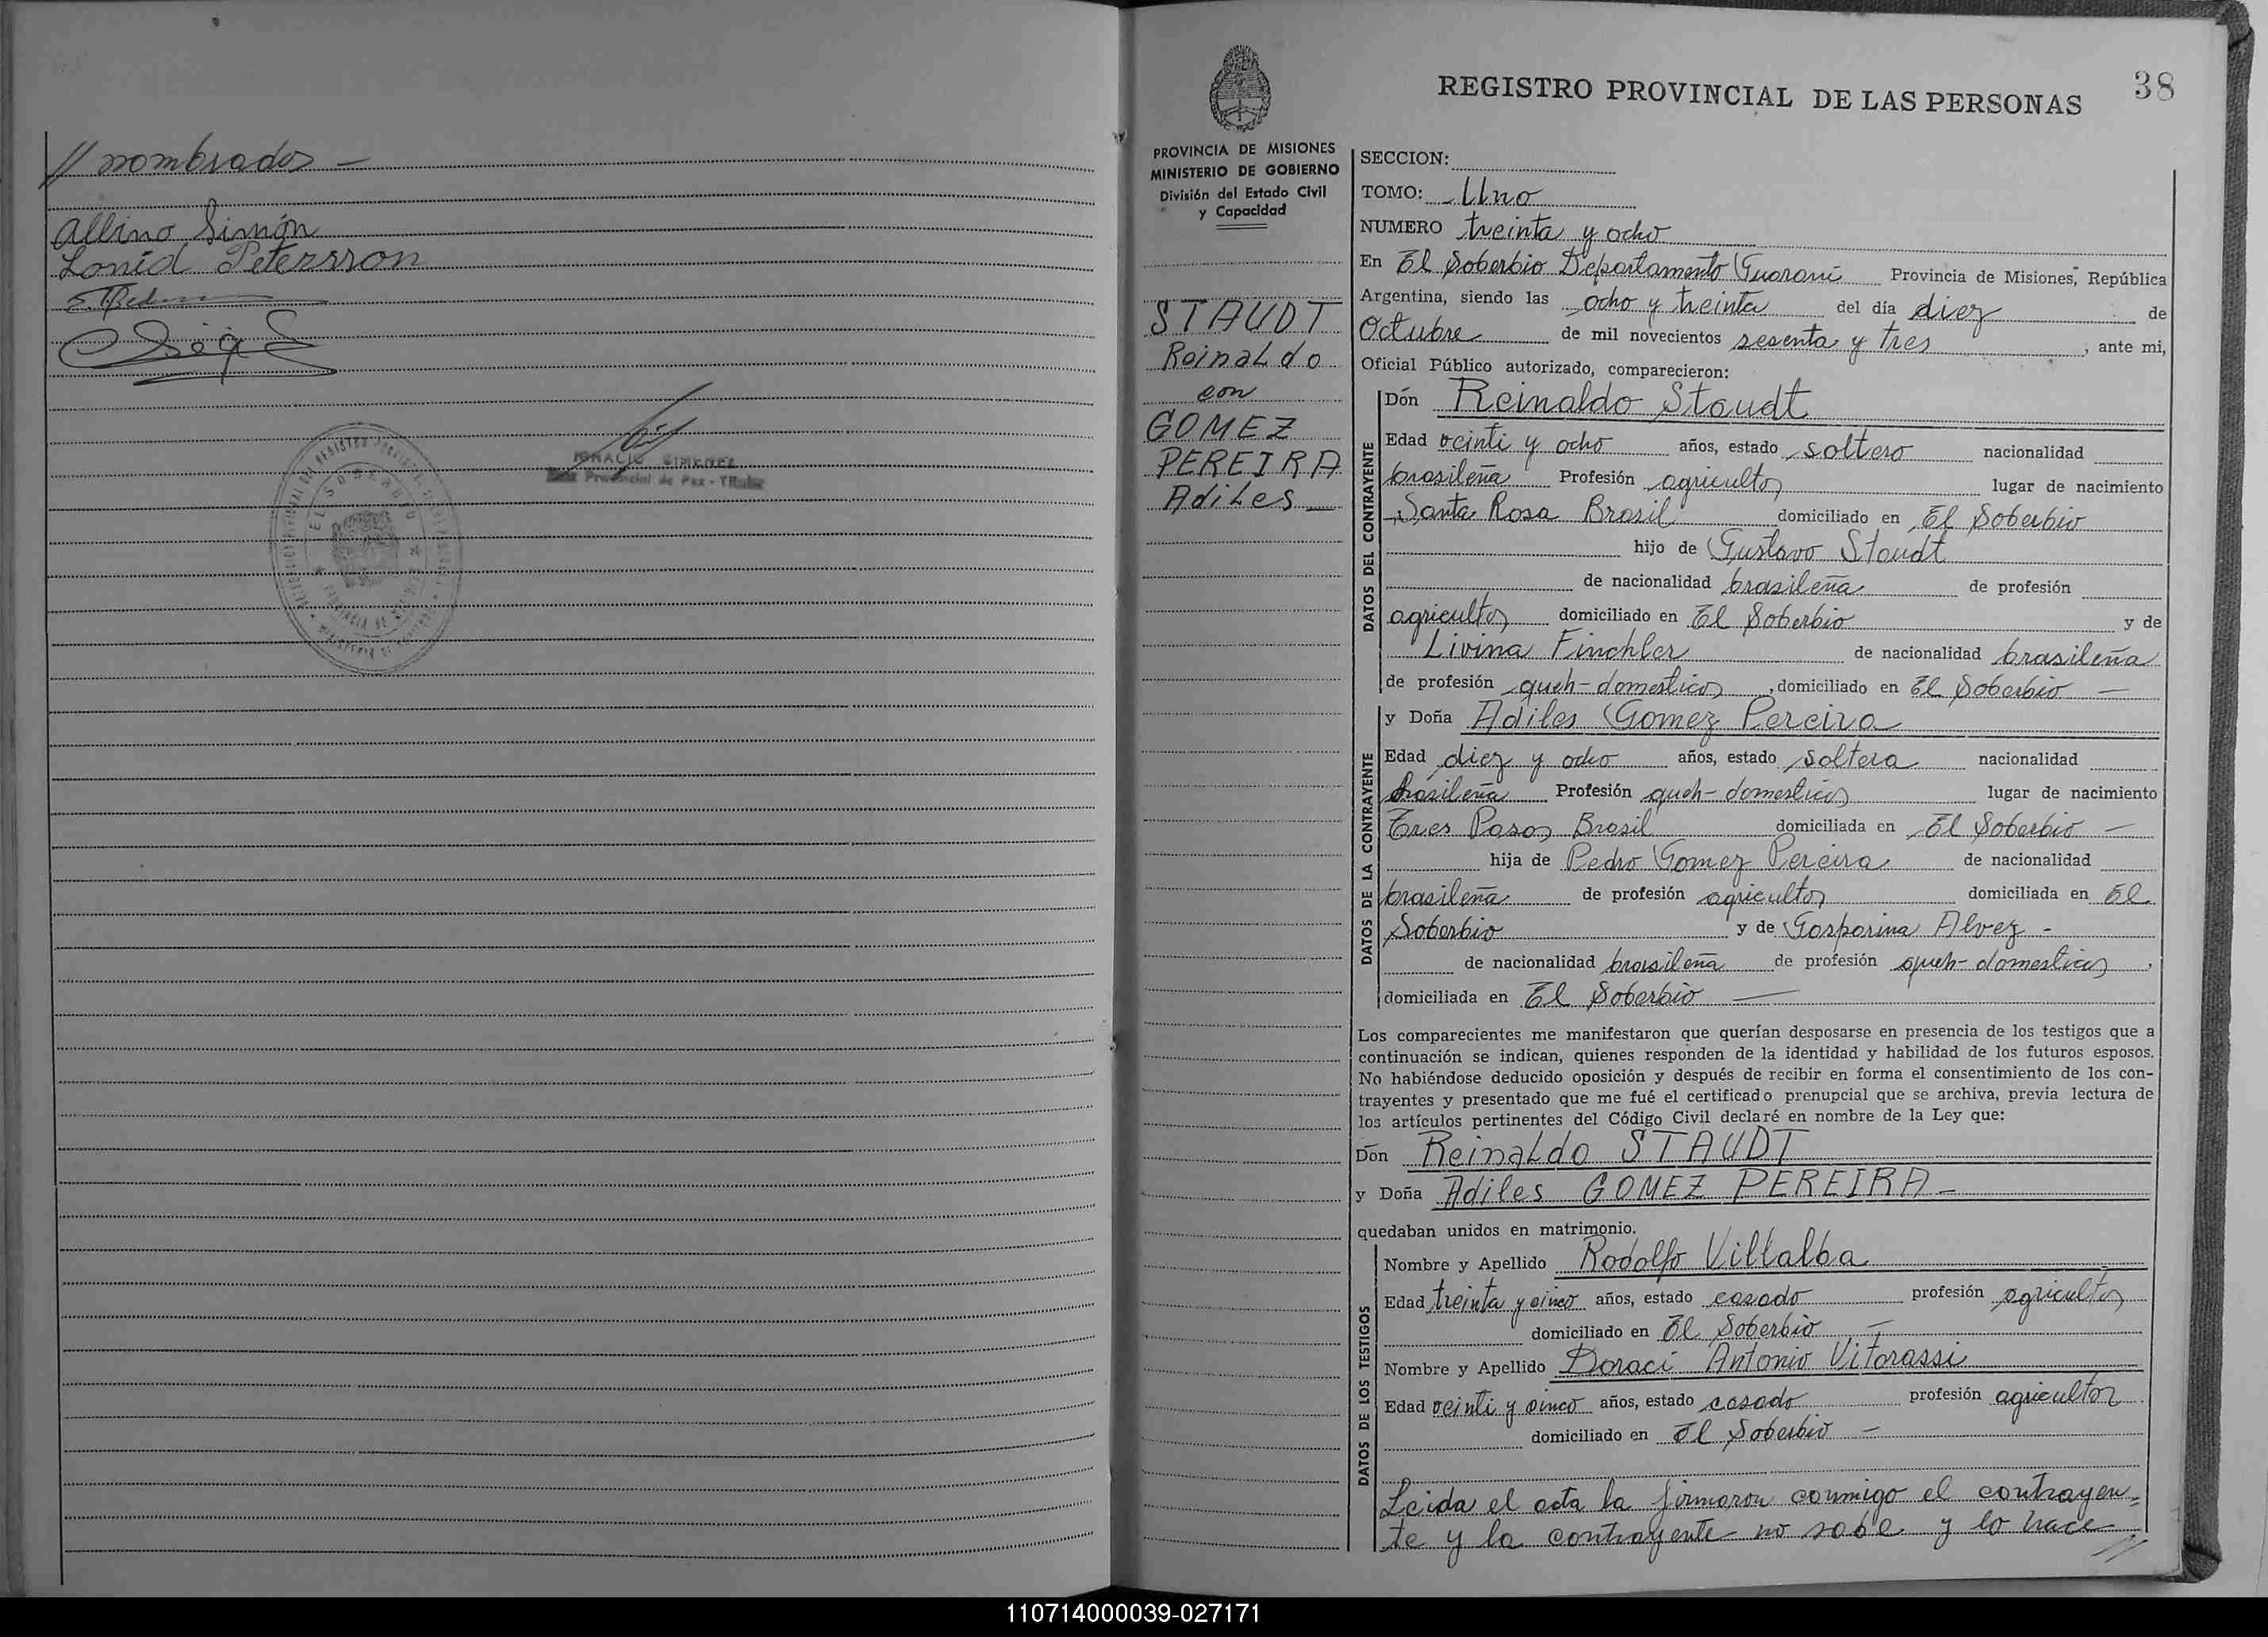 // nombrados —
Albino Simón
Lonid Petersson
IGNACIO GIMENEZ
Provincial de Paz - Titular
EL SOBERBIO
38
REGISTRO PROVINCIAL DE LAS PERSONAS
PROVINCIA DE MISIONES
MINISTERIO DE GOBIERNO
División del Estado Civil
y Capacidad
STAUDT
Reinaldo
con
GOMEZ
PEREIRA
Adiles —
SECCION:
TOMO: Uno
NUMERO treinta y ocho
En El Soberbio Departamento Guaraní Provincia de Misiones, República
Argentina, siendo las ocho y treinta del día diez de
Octubre de mil novecientos sesenta y tres, ante mi,
Oficial Público autorizado, comparecieron:
DATOS DEL CONTRAYENTE
Dón Reinaldo Staudt
Edad veinti y ocho años, estado soltero nacionalidad
brasileña Profesión agricultor lugar de nacimiento
Santa Rosa Brasil domiciliado en El Soberbio
hijo de Gustavo Staudt
de nacionalidad brasileña de profesión
agricultor domiciliado en El Soberbio y de
Livina Finchler de nacionalidad brasileña
de profesión queh-domesticos, domiciliado en El Soberbio —
DATOS DE LA CONTRAYENTE
y Doña Adiles Gomez Pereira
Edad diez y ocho años, estado soltera nacionalidad
brasileña Profesión queh-domesticos lugar de nacimiento
Tres Pasos Brasil domiciliada en El Soberbio —
hija de Pedro Gomez Pereira de nacionalidad
brasileña de profesión agricultor domiciliada en El
Soberbio y de Gasparina Alvez -
de nacionalidad brasileña de profesión queh-domesticos,
domiciliada en El Soberbio —
Los comparecientes me manifestaron que querían desposarse en presencia de los testigos que a
continuación se indican, quienes responden de la identidad y habilidad de los futuros esposos.
No habiéndose deducido oposición y después de recibir en forma el consentimiento de los con-
trayentes y presentado que me fué el certificado prenupcial que se archiva, previa lectura de
los artículos pertinentes del Código Civil declaré en nombre de la Ley que:
Dón Reinaldo STAUDT
y Doña Adiles GOMEZ PEREIRA —
quedaban unidos en matrimonio.
DATOS DE LOS TESTIGOS
Nombre y Apellido Rodolfo Villalba
Edad treinta y cinco años, estado casado profesión agricultor
domiciliado en El Soberbio —
Nombre y Apellido Doraci Antonio Vitorassi
Edad veinti y cinco años, estado casado profesión agricultor
domiciliado en El Soberbio —
Leida el acta la firmaron conmigo el contrayen=
te y la contrayente no sabe y lo hace //
110714000039-027171